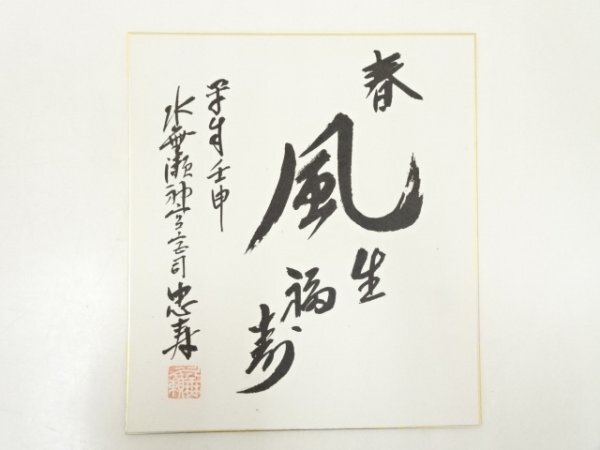 春風生福寿
平成壬申
水無瀬神宮宮司忠寿